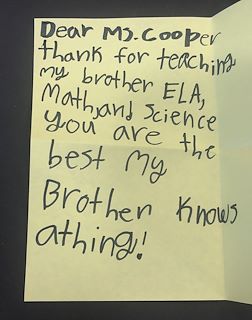 Dear Ms. Cooper
thank for teaching
my brother ELA,
Math,and Science
you are the
best my
Brother knows
athing!